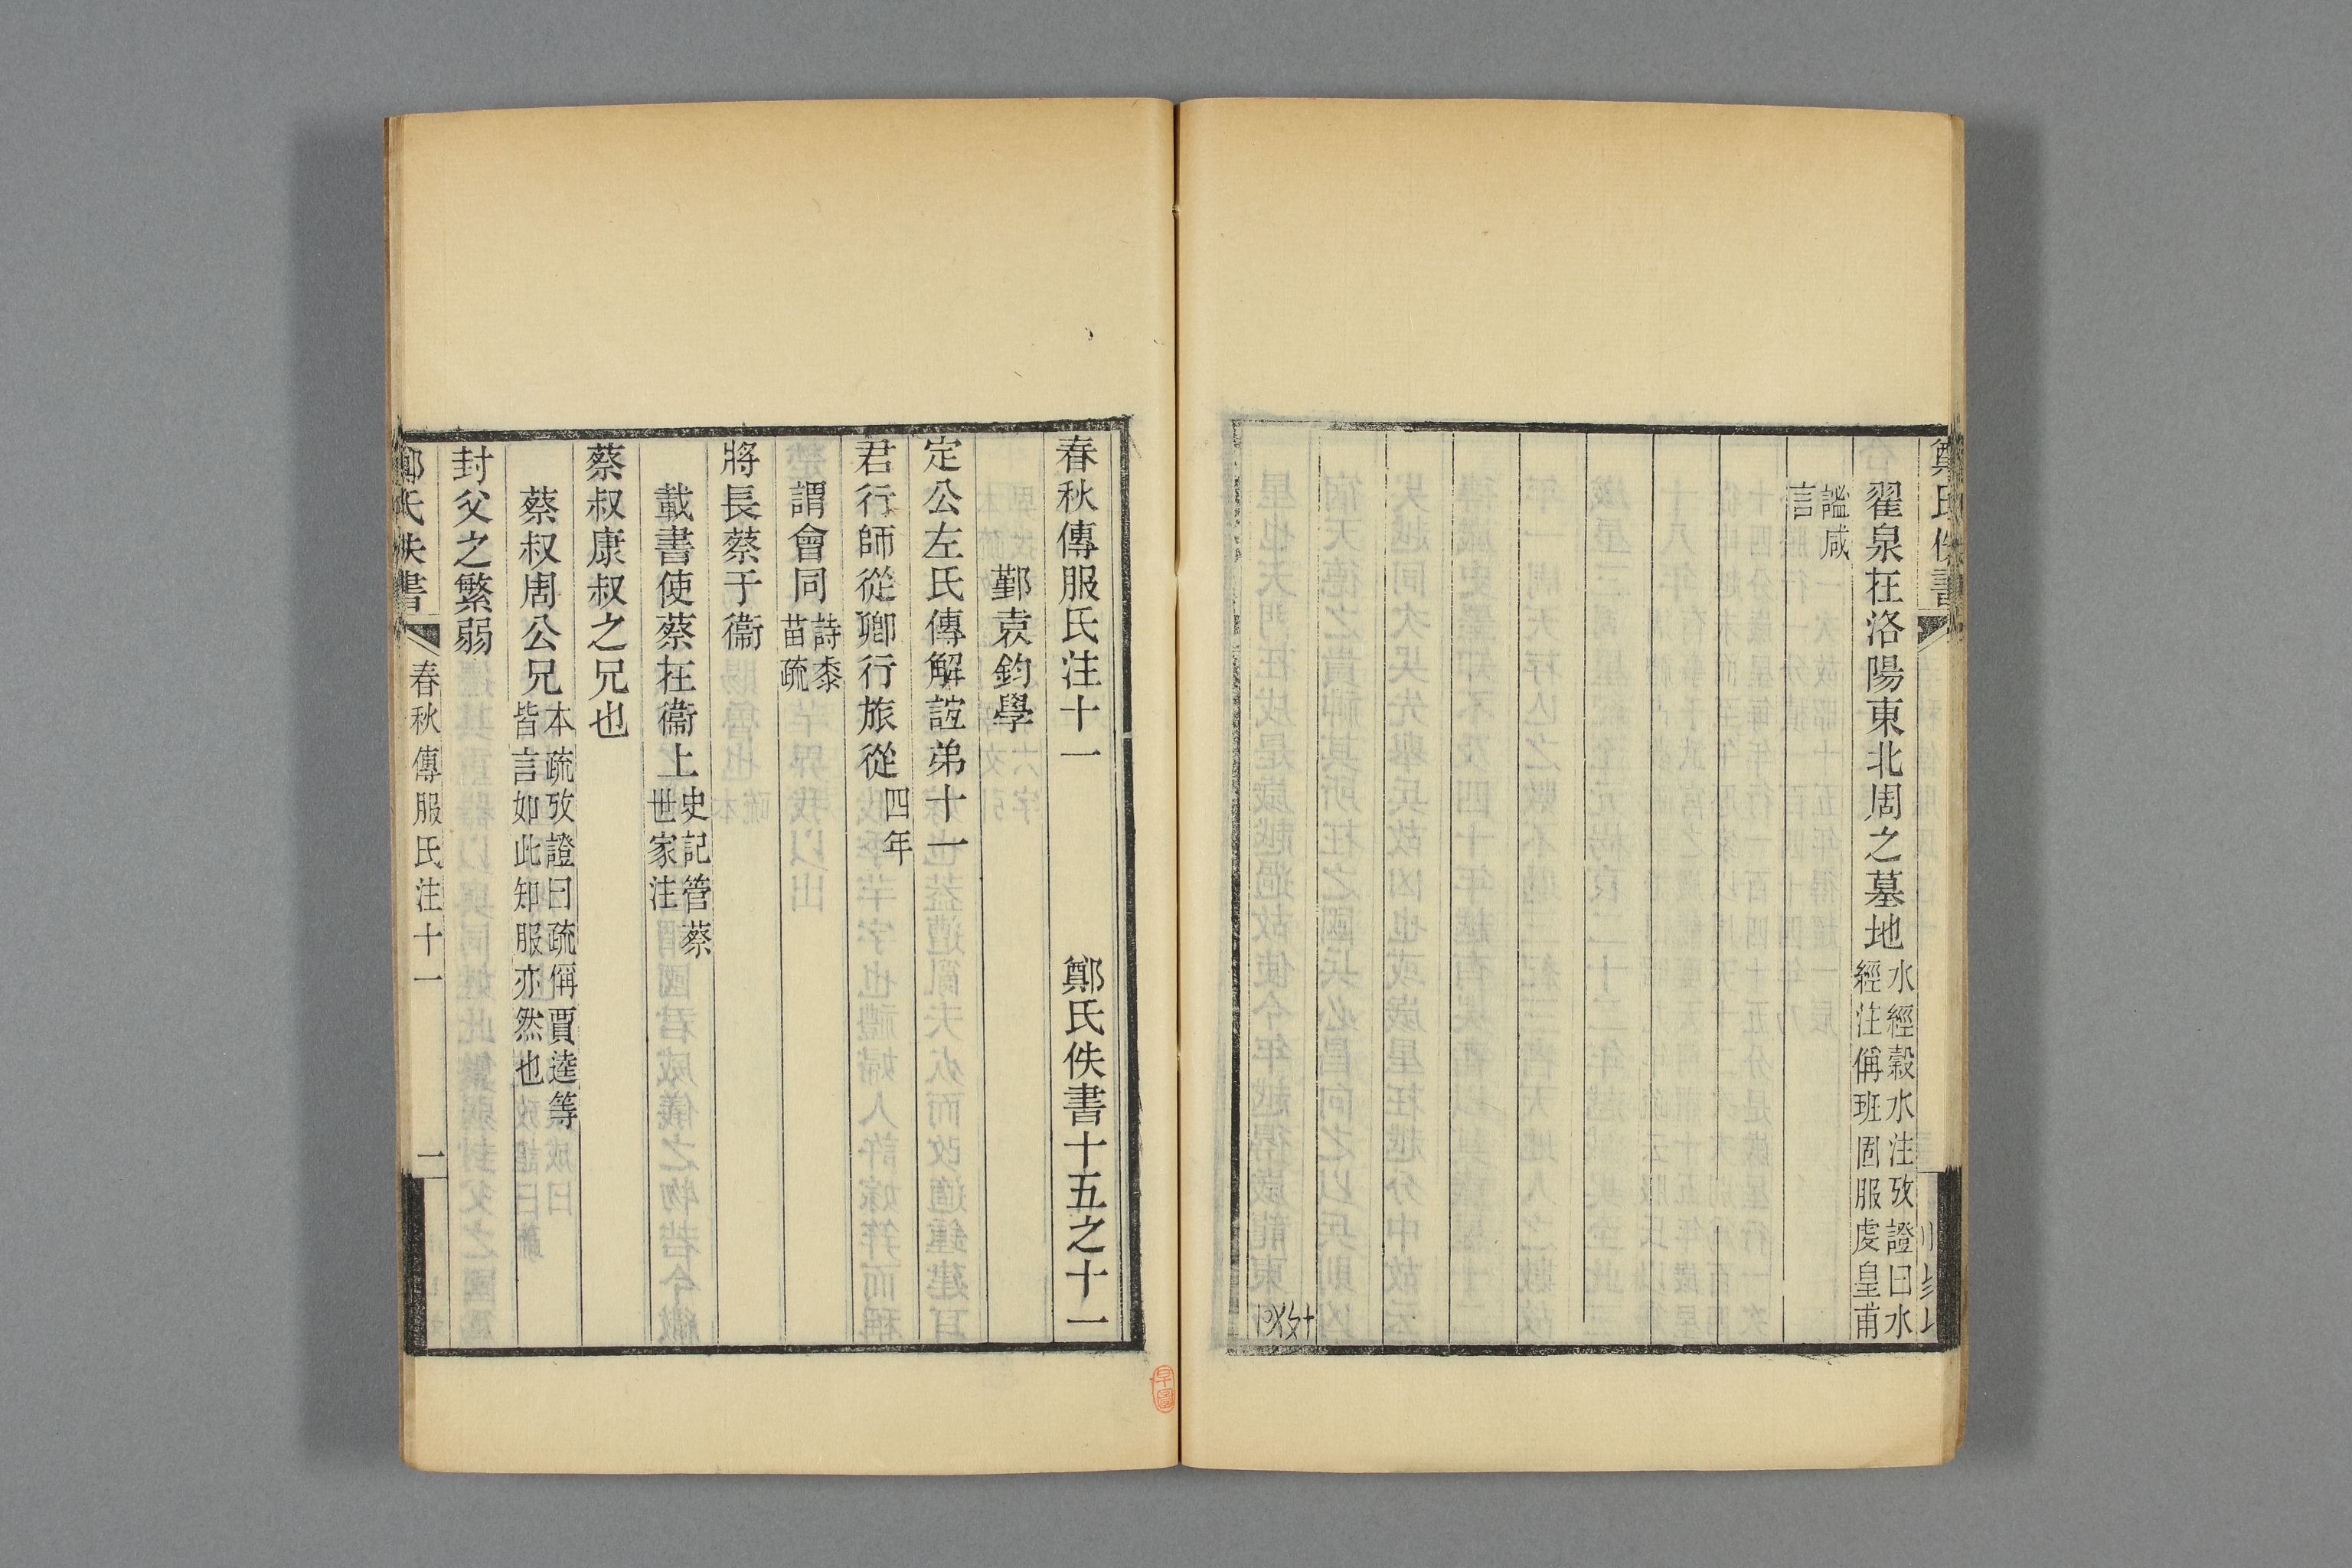 鄭氏佚書
翟泉在洛陽東北周之墓地水經穀水注攷證曰水經注偁班固服虔皇甫
謐咸言
春秋傳服氏注十一 鄭氏佚書十五之十一
鄞袁鈞學
定公左氏傳解誼弟十一
君行師從卿行旅從四年
謂會同詩黍苗疏
將長蔡于衞
載書使蔡在衞上史記管蔡世家注
蔡叔康叔之兄也
蔡叔周公兄本疏攷證曰疏偁賈逵等皆言如此知服亦然也
封父之繁弱
鄭氏佚書 春秋傳服氏注十一 一